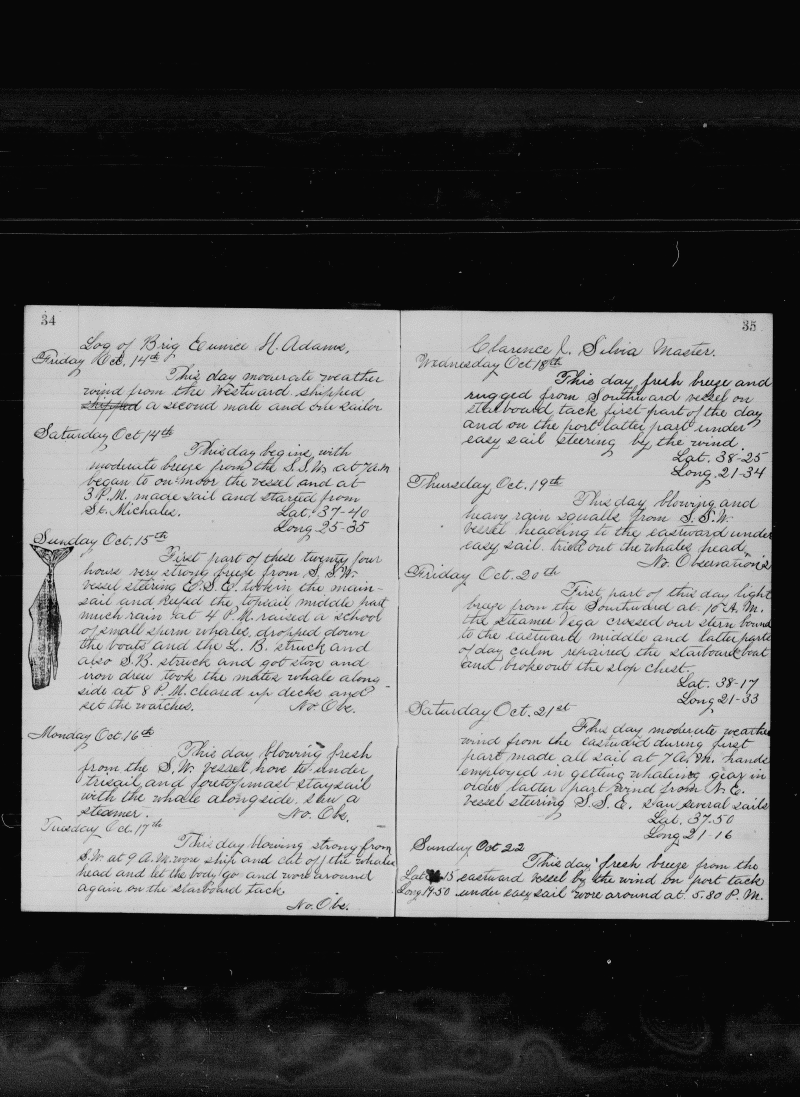 34
Log of Brig Eunice H. Adams,
Friday Oct. 14th
This day moderate weather
wind from the Westward shipped
shipped a second mate and one sailor
Saturday Oct 14th
This day begins with
moderate breeze from the S.S.W. at 7 A.M.
began to on-moor the vessel and at
3 P.M. made sail and started from
St. Michales. Lat. 37-40
Long 25-35
Sunday Oct. 15th
First part of these twenty four
hours very strong breeze from S.S.W.
vessel steering E.S.E. took in the main-
sail and reefed the topsail middle part
much rain at 4 P.M. raised a school
of small sperm whales, dropped down
the boats and the L.B. struck and
also S.B. struck and got stove and
iron drew took the mates whale along
side at 8 P.M. cleared up decks and
set the watches. No. Obs.
Monday Oct 16th
This day blowing fresh
from the S.W. vessel hove to under
trisail and foretopmast staysail
with the whale alongside, saw a
steamer. No. Obs.
Tuesday Oct. 17th
This day blowing strong from
S.W. at 9 A.M. wore ship and cut off the whales
head and let the body go and wore around
again on the starboard tack
No. Obs.
35
Clarence J. Silvia Master.
Wednesday Oct 18th
This day fresh breeze and
rugged from Southward vessel on
starboard tack first part of the day
and on the port latter part under
easy sail steering by the wind.
Lat. 38-25
Long 21-34
Thursday Oct. 19th
This day blowing and
heavy rain squalls from S.S.W.
vessel heading to the eastward under
easy sail. tried out the whales head,
No. Observations
Friday Oct. 20th
First part of this day light
breeze from the Southward at 10 A.M.
the steamer Vega crossed our stern bound
to the eastward middle and latter parts
of day calm repaired the starboard boat
and broke out the slop chest.
Lat. 38-17
Long 21-33
Saturday Oct. 21st
This day moderate weather
wind from the eastward during first
part made all sail at 7 A.M. hands
employed in getting whaleing gear in
order latter part wind from N.E.
vessel steering S.S.E. saw several sails
Lat. 37.50
Long 21-16
Sunday Oct 22
This day fresh breeze from the
Lat. 15 eastward vessel by the wind on port tack
Long 19-50 under easy sail wore around at 5.30 P.M.